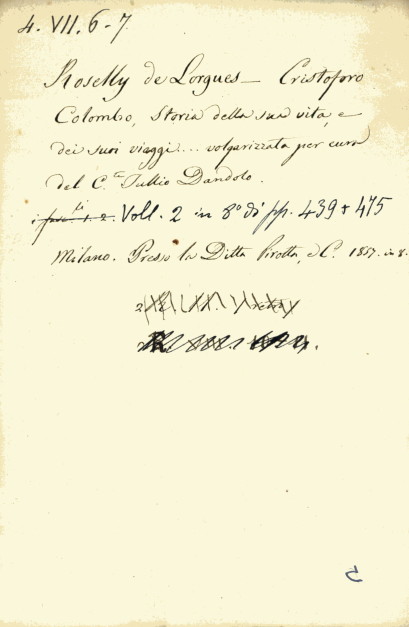 4. VII. 6-7
Roselly de Lorgues — Cristoforo
Colombo, Storia della sua vita, e
dei suoi viaggi... volgarizzata per cura
del C.te Tullio Dandolo.
Voll. 2 in 8º di pp. 439 + 475
Milano. Presso la Ditta Pirotta, e C. 1857. in 8.